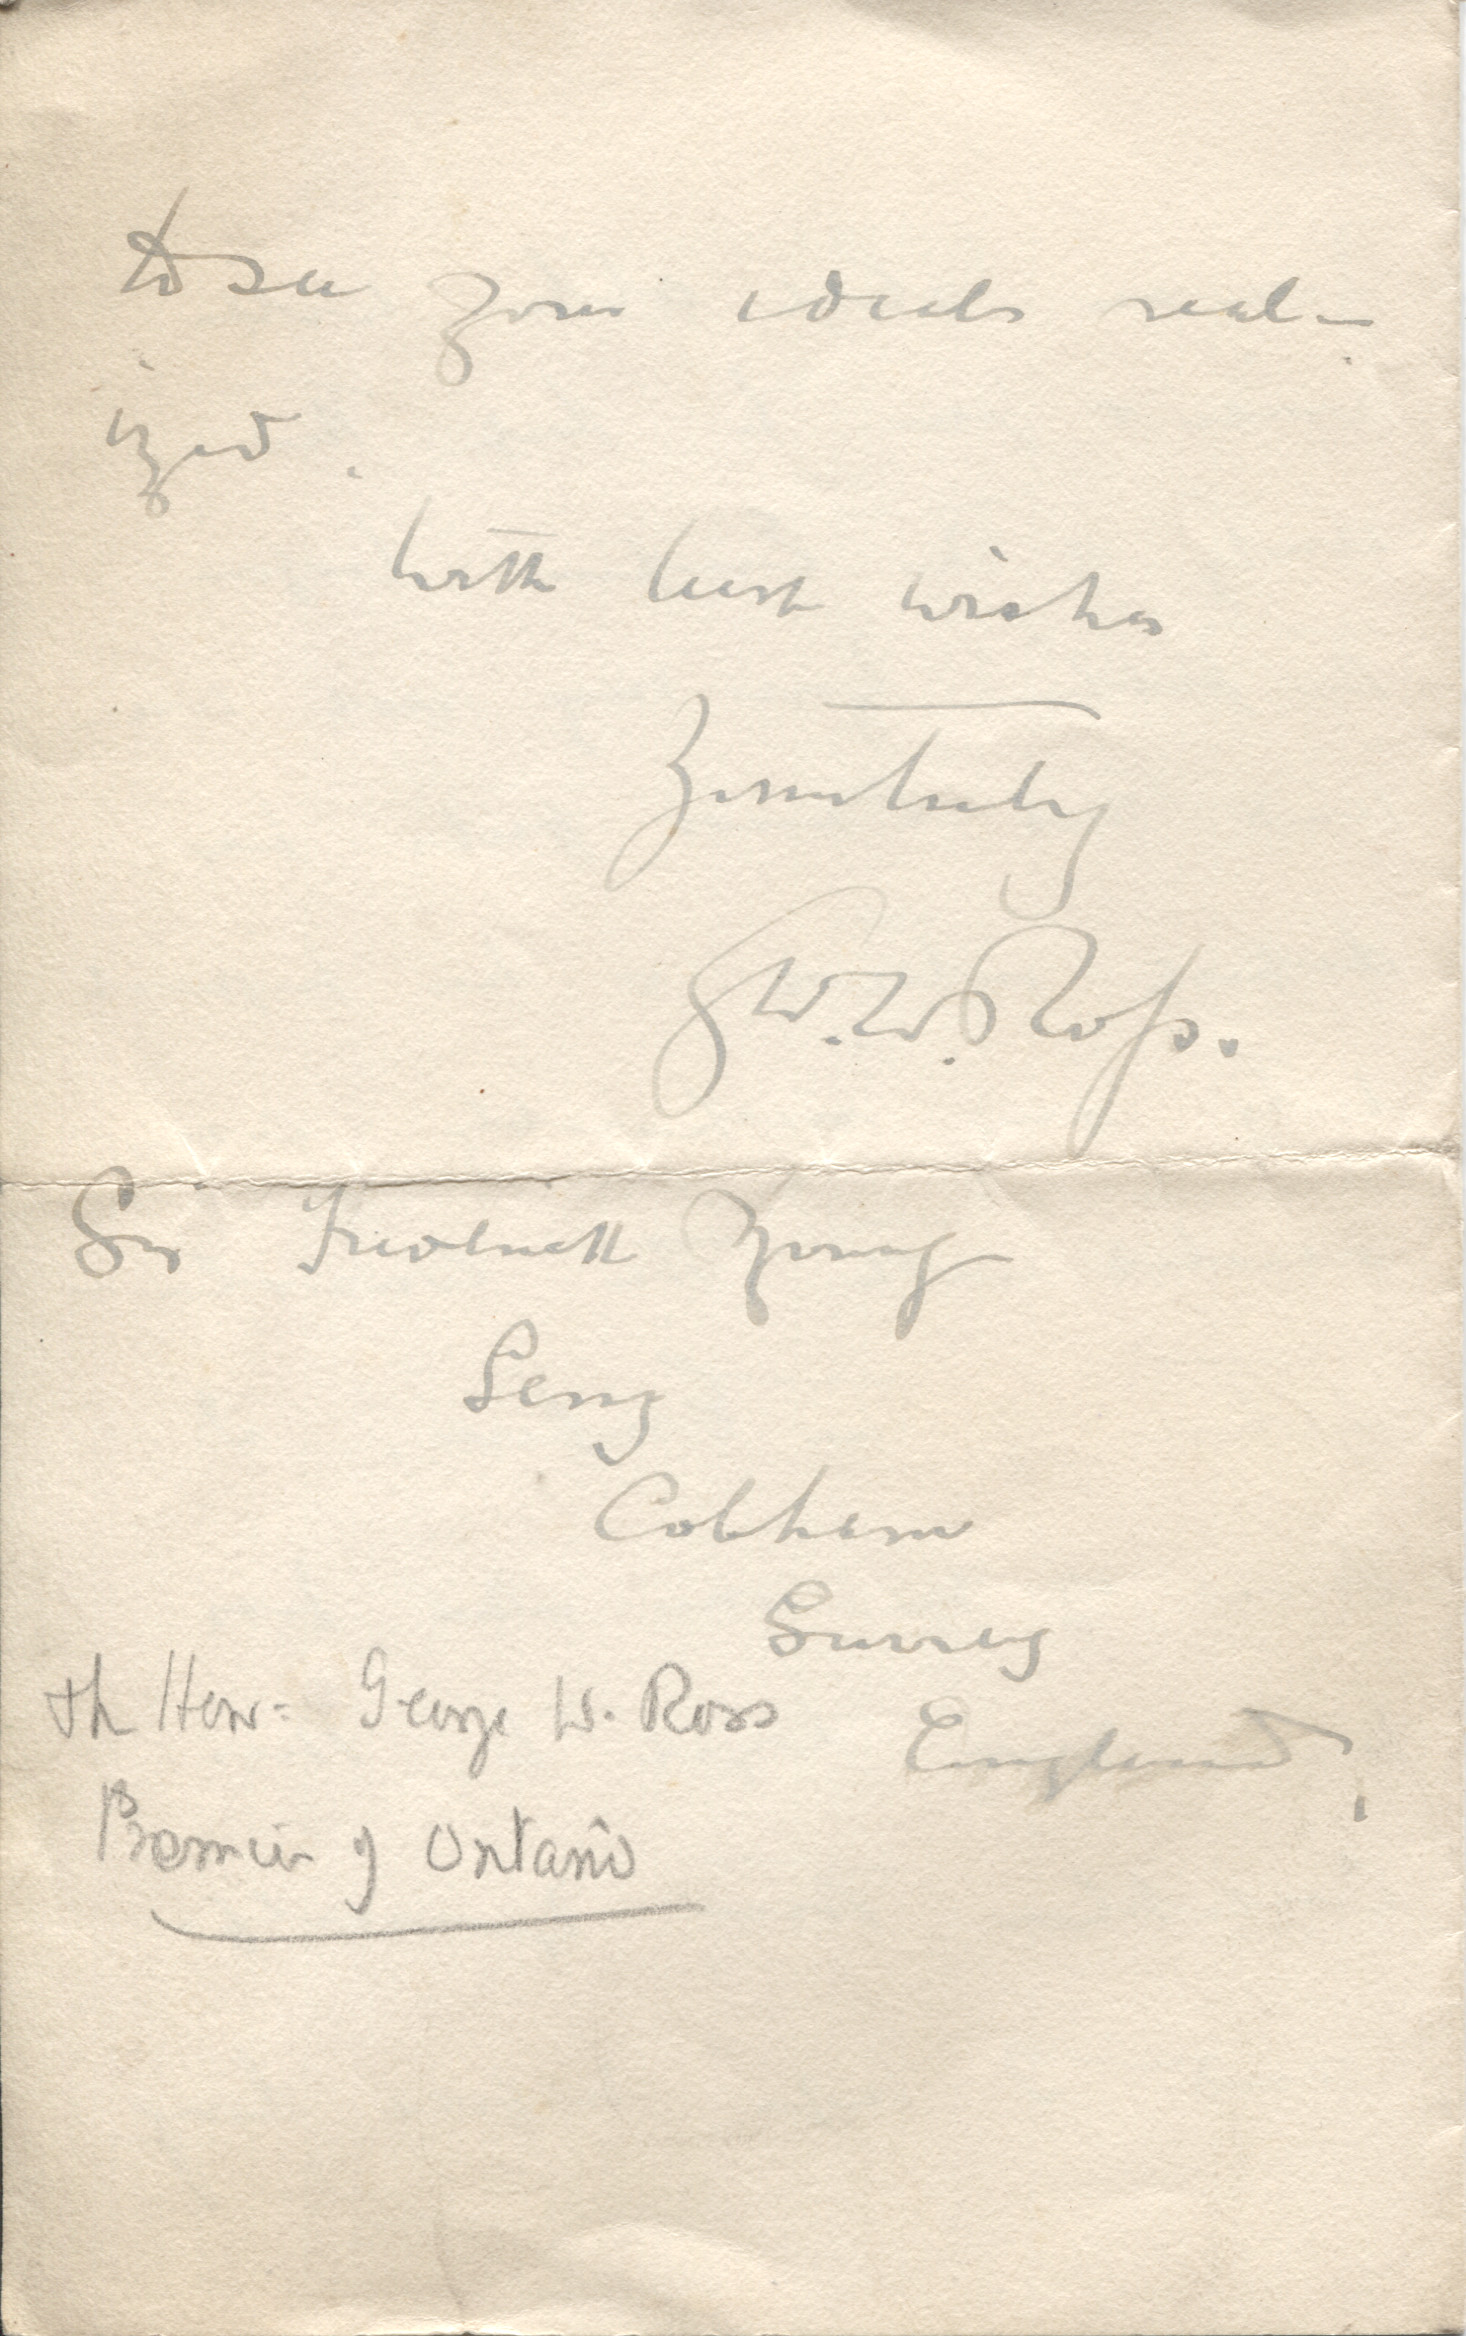 to see your ideals real-
ized.
With best wishes
Yours truly
G. W. Ross.
Sir Frederick Young
Leny
Cobham
Surrey
England
The Hon: George W. Ross
Premier of Ontario